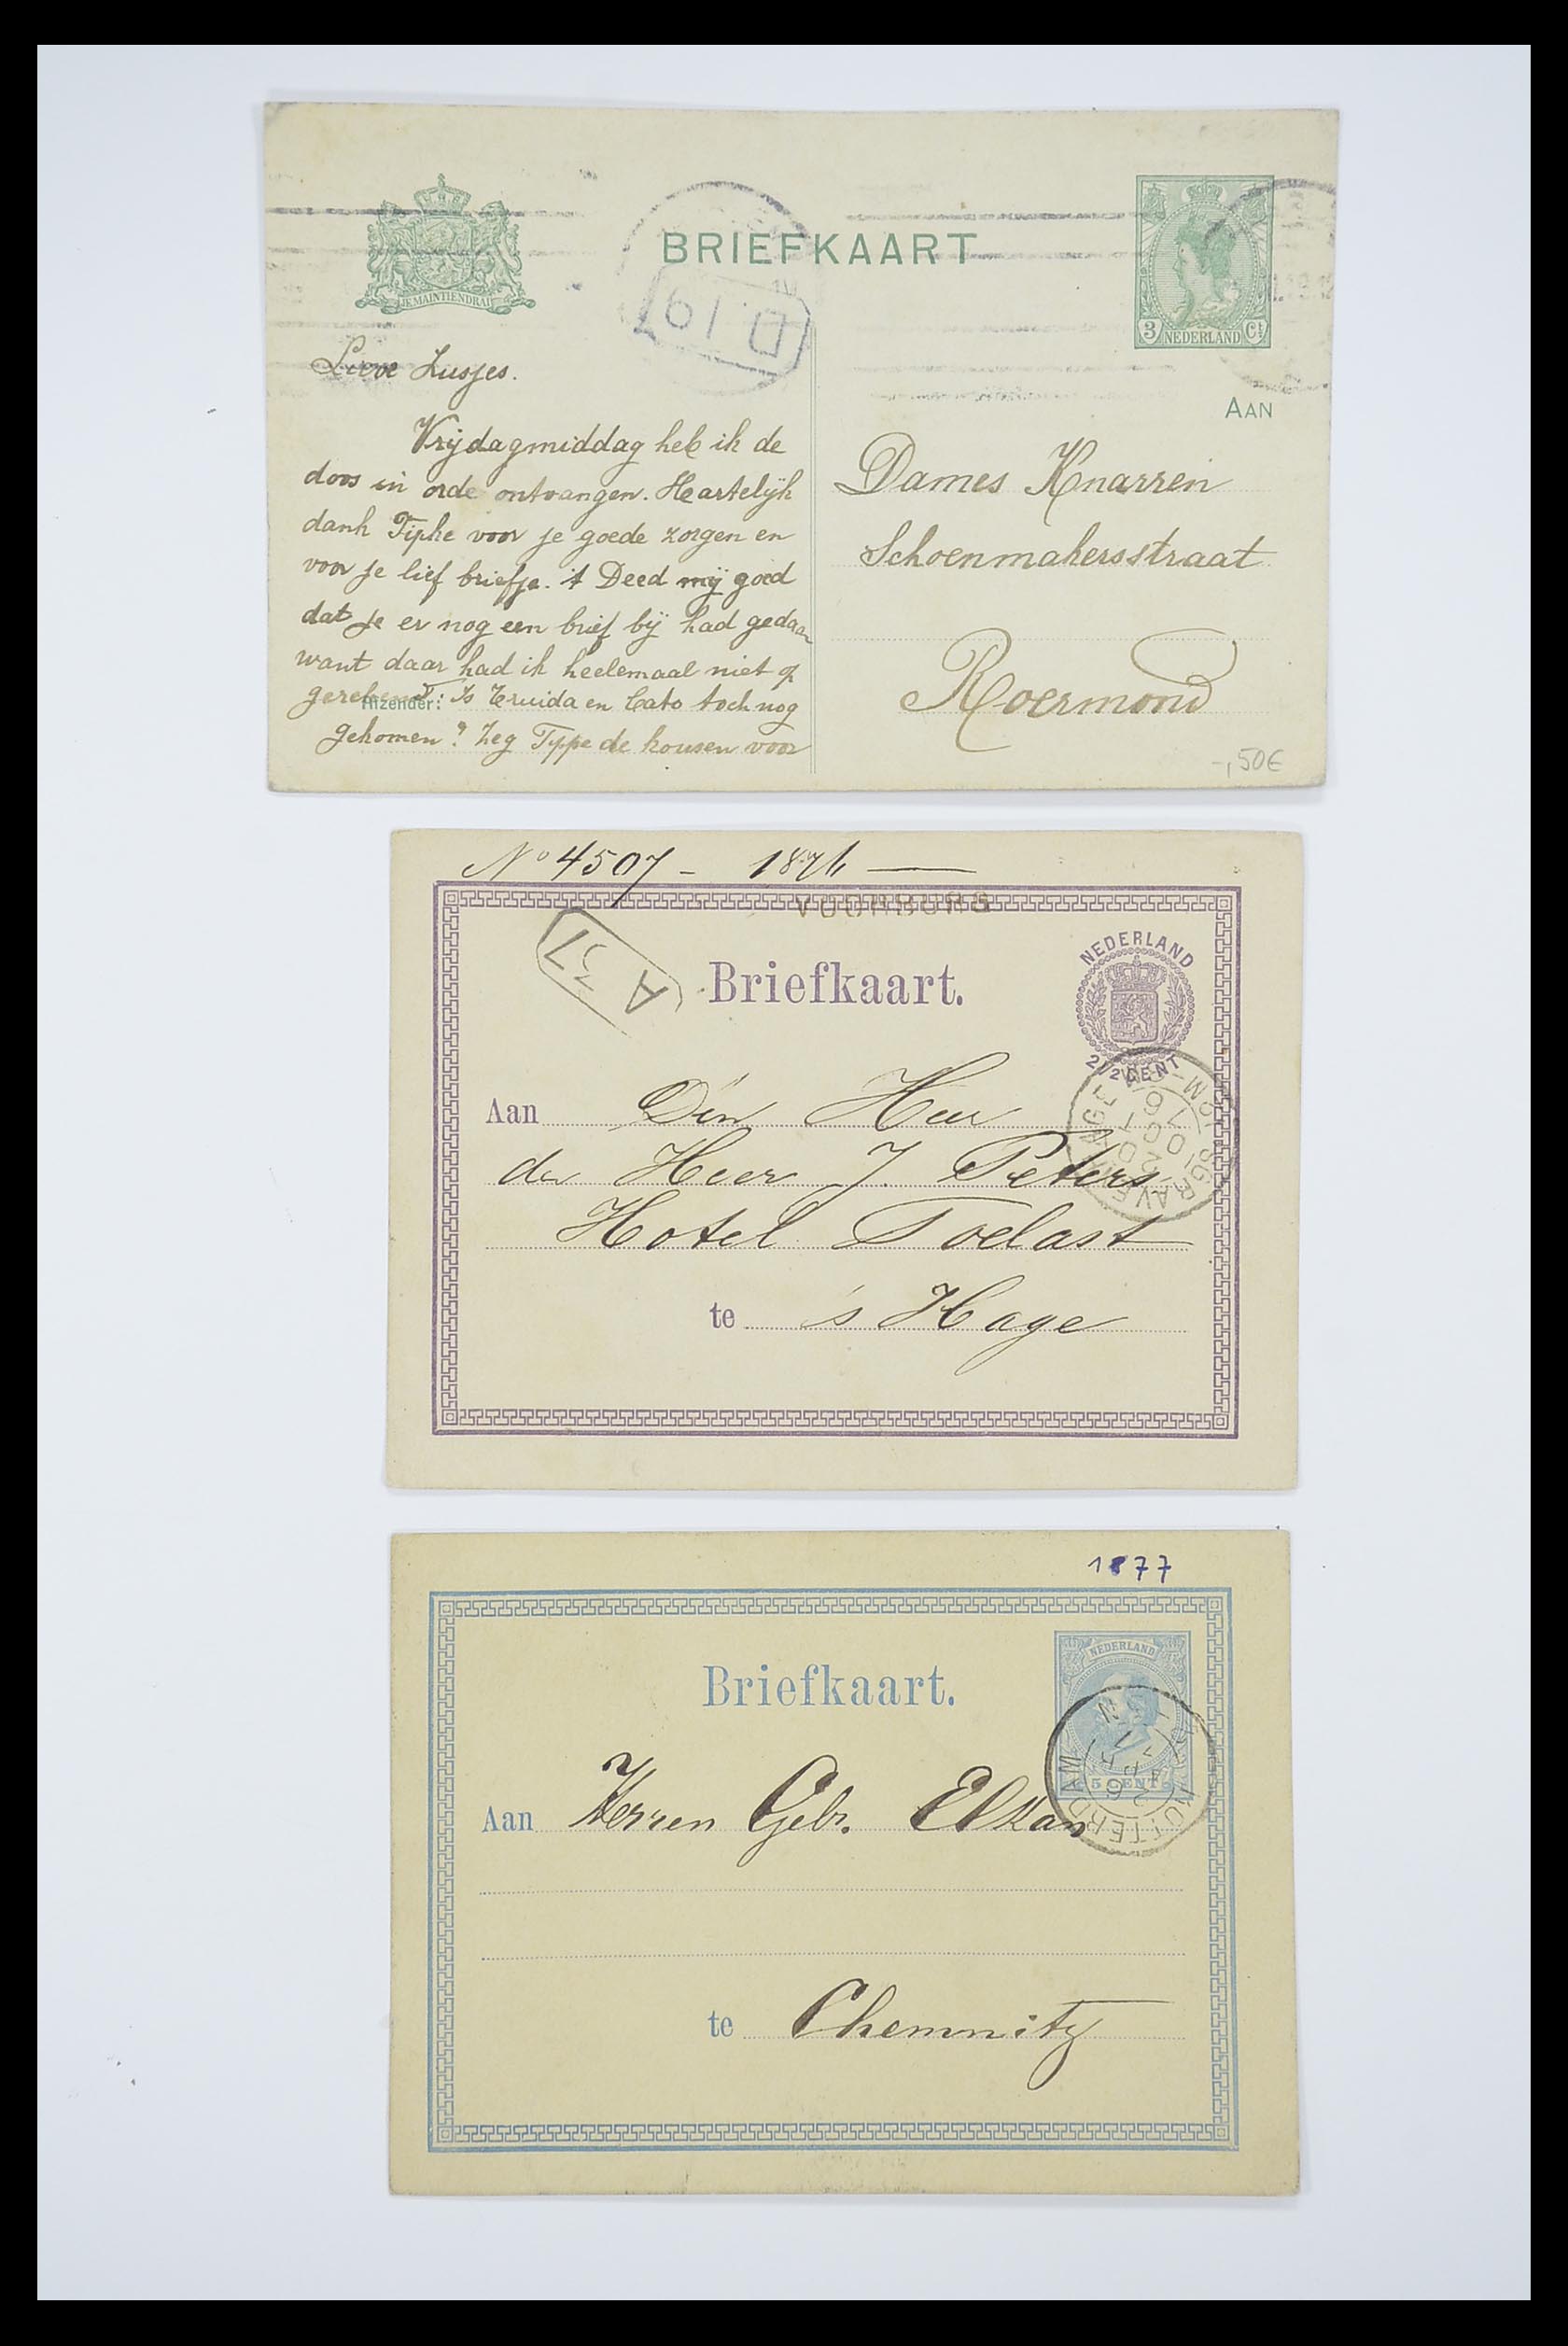 BRIEFKAART
JE MAINTIENDRAI
3 Ct
NEDERLAND
D. 19
Lieve Zusjes.
Vrijdagmiddag heb ik de
doos in orde ontvangen. Hartelijk
dank Fipke voor je goede zorgen en
voor je lief briefje. 't Deed mij goed
dat je er nog een brief bij had gedaan
want daar had ik heelemaal niet op
gerekend. Is Truida en Cato toch nog
Afzender:
gekomen? Zeg Tippe de kousen voor
AAN
Dames Knarren
Schoenmakersstraat
Roermond
-,50€
No 4507 - 1876
VOORBURG
A 37
Briefkaart.
NEDERLAND
2 1/2 CENT
'SGRAVENHAGE
20
OCT
Aan Den Heer
den Heer J. Peters
Hotel Toelast
te 's Hage
1877
Briefkaart.
NEDERLAND
5 CENT
ROTTERDAM
26
APR
77
Aan Herren Gebr. Elkan
te Chemnitz